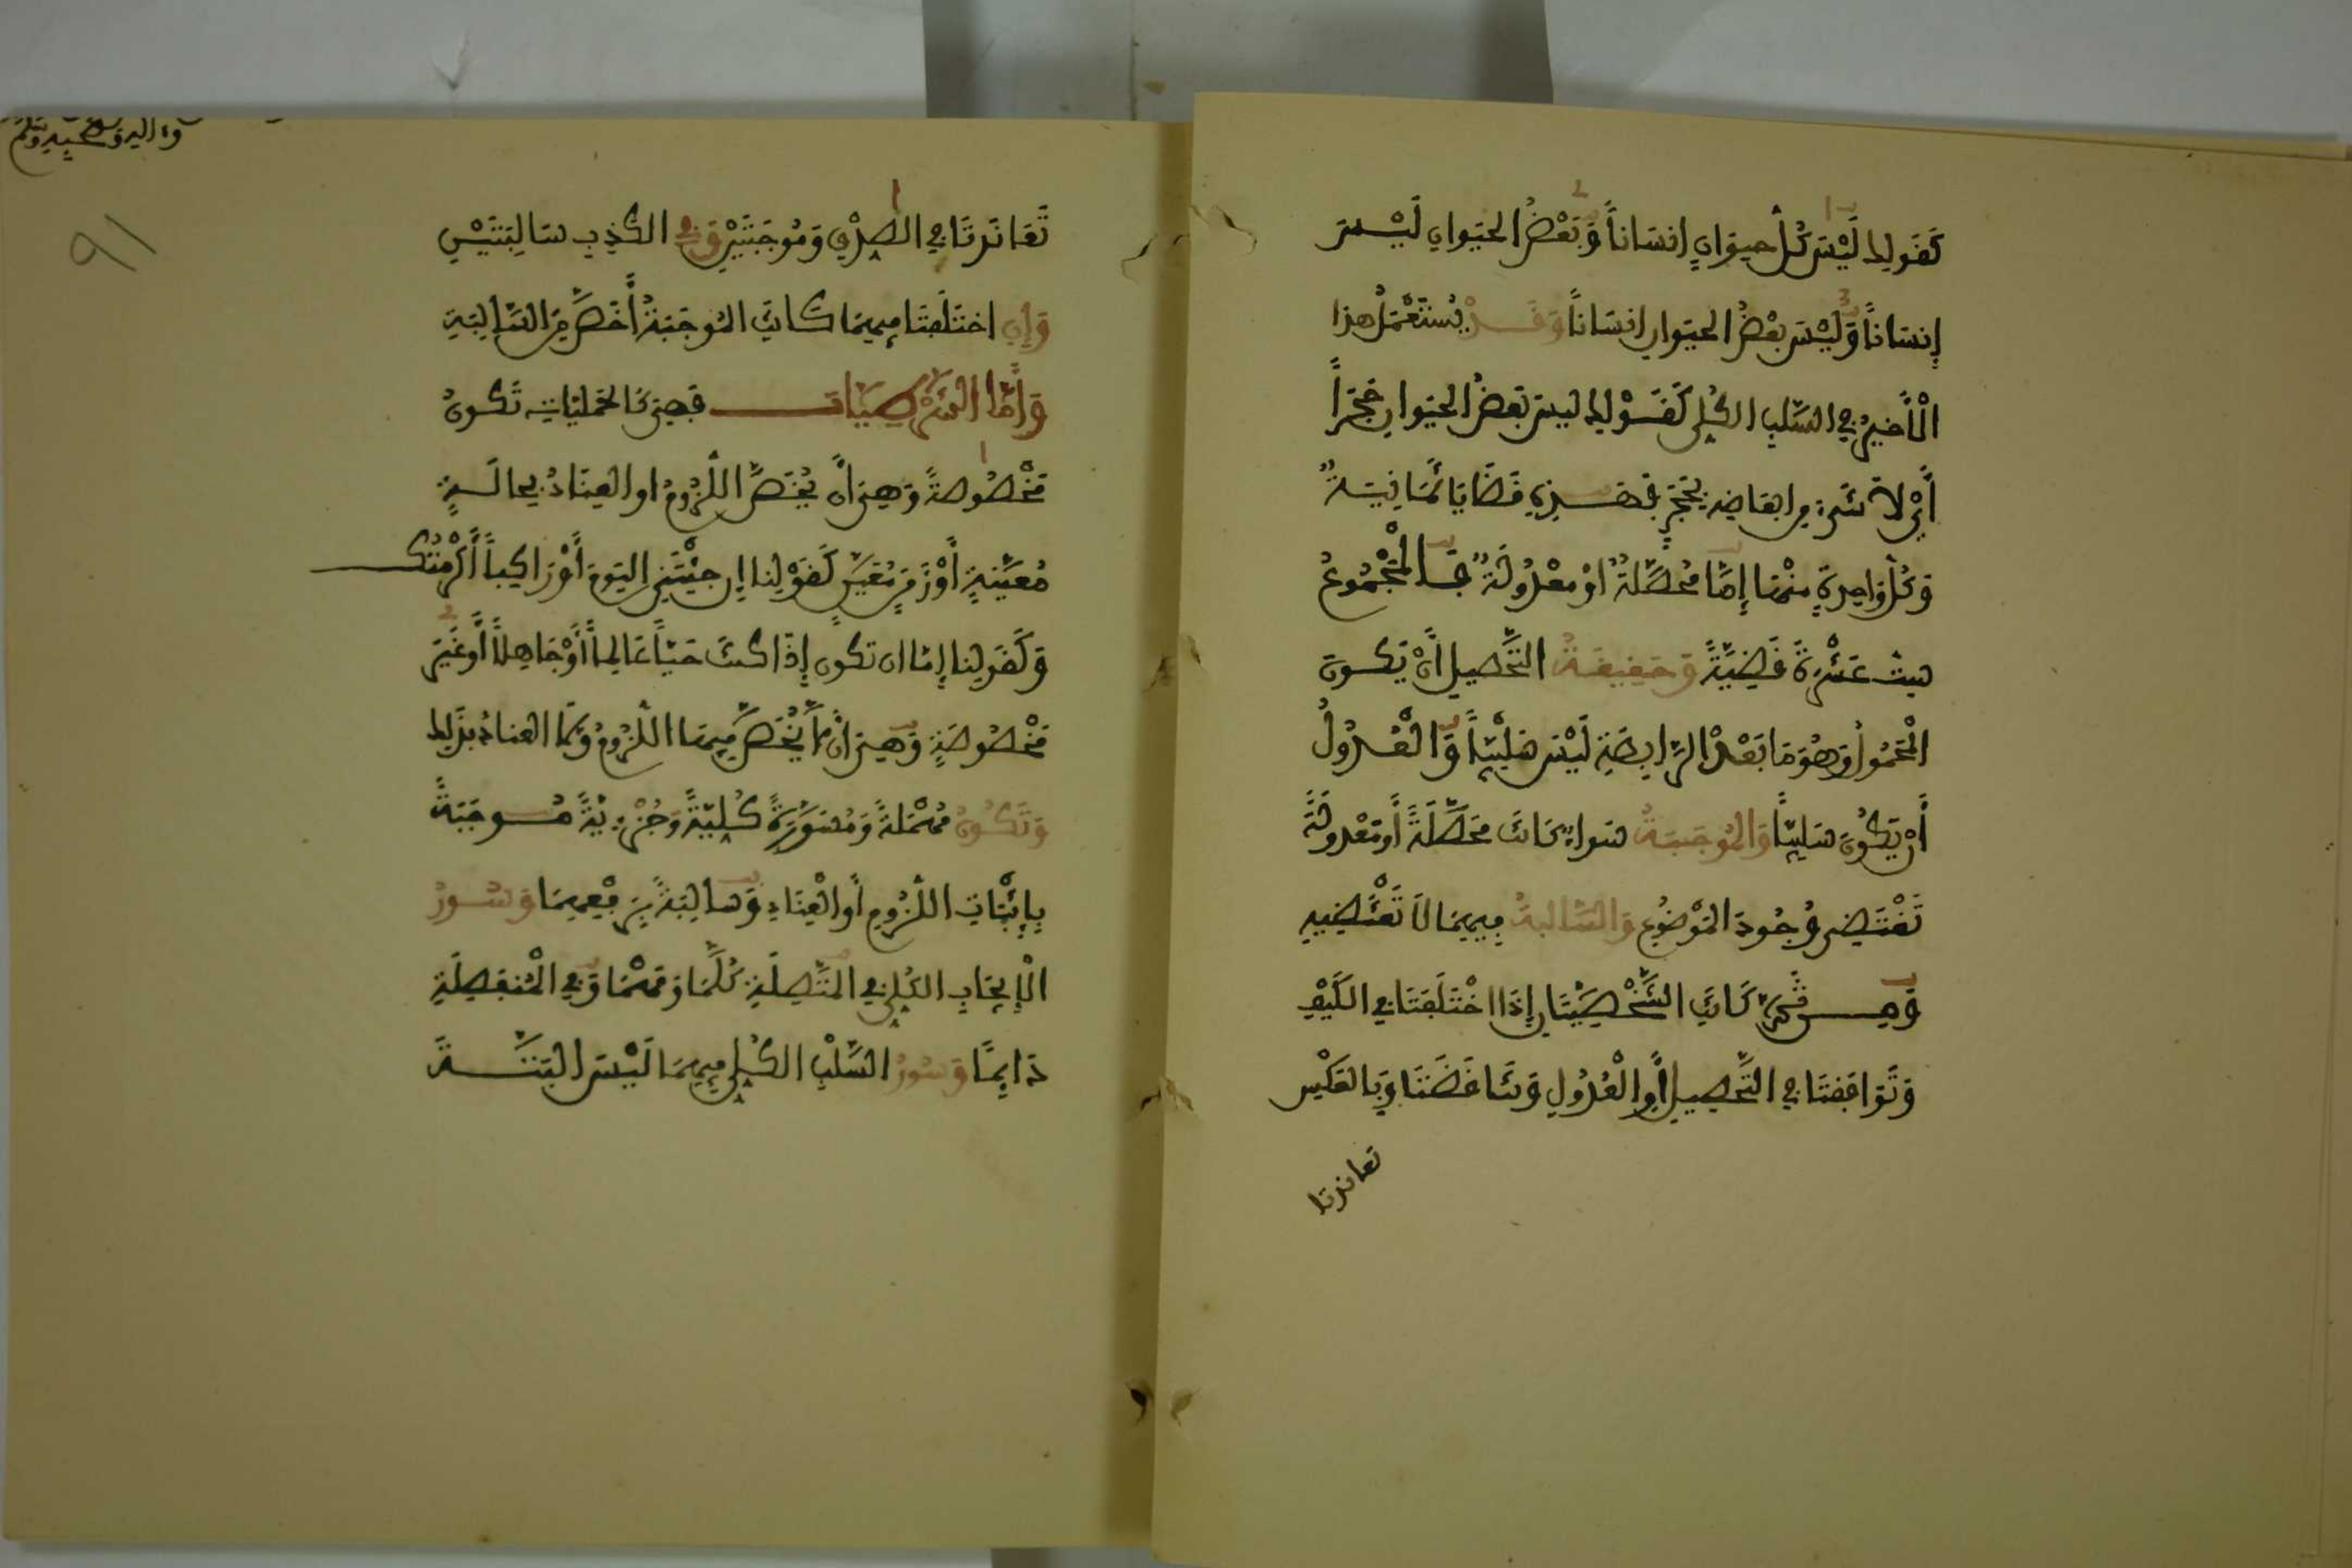 كَقَولِك لَيْسَ كُلُّ حيوانٍ انسَاناً وَبَعْضُ الحيَوانِ لَيْسَ
إِنسَاناً وَلَيْسَ بعْضُ الحيَوانِ انسَاناً وَقَدْ يُسْتَعْمَلُ هذا
الْأَخيرُ في السَّلبِ الكُلِي كَقَوْلِك ليسَ بَعضُ الحيَوانِ حَجَراً
أَيْ لاَ شَيءَ مِن ابعَاضِه بحَجَرٍ فهَذِهِ قَضَايَا ثَمَانِيَةٌ
وَكُلُّ وَاحِدَةٍ مِنْهَا إِمَّا مُحَصَّلَةٌ اوْ معْدُولَةٌ فَالْمَجْمُوعُ
سِتَّ عَشْرَةَ قَضِيَّةً وَحَقِيقَةُ التَّحْصِيلِ أَنْ يَكونَ
الْمَحْمُولُ وَهُوَ مَا بَعْدَ الرَّابِطَةِ لَيْسَ سَلْبِيّاً وَالْعُدُولُ
أَنْ يَكُونَ سَلبِيّاً وَالْمُوجَبَةُ سَواءٌ كَانَت مُحَصَّلَةً أَو مَعْدولَةً
تَقْتَضِي وُجُودَ المَوْضُوعِ وَالسَّالبةُ فِيهِمَا لاَ تَقْتَضِيهِ
وَمِن ثَمَّ كَانَتِ الشَّخْصِيَّتَانِ إِذَا اخْتَلَفَتَا فِي الكَيْفِ
وَتَوَافَقَتَا في التَّحْصِيلِ أَوِ الْعُدُولِ وَتَنَاقَضَتَا وَبِالعَكْسِ
تعاندتا
واليه وصحبه وسلم
91
تَعَانَدَتَا في الصِدْقِ وَمُوجَبَتَيْنِ وَفِي الكَذِبِ سَالِبَتَيْنِ
وَإِنِ اخْتَلَفَتَا فِيهِمَا كَانَتِ المُوجَبَةُ أَخَصَّ مِنَ السَّالِبَةِ
وَأَمَّا الشَّرْطِيَّات فَهِيَ كَالحَمْلِيَّاتِ تَكُونُ
مَخْصُوصَةً وَهِيَ أَن يُخَصَّ اللُّزُومُ اوِ العِنَادُ بِحالَةٍ
مُعَيَّنَةٍ أَوْ زَمَنٍ مُعَيَّنٍ كَقَوْلِنا إِن جِئْتَنِي اليَومَ أَوْ رَاكِباً أَكْرَمْتُك
وَكَقَولِنا إِمّا ان تكون إِذَا كنتَ حَيّاً عَالِماً أَوْ جَاهِلاً أَوْ غَيْرَ
مَخْصُوصَةٍ وَهِيَ انْ لاَ يُخَصَّ فِيهَا اللُّزُومُ وَلاَ العِنادُ بِذَلِك
وَتَكُونُ مُهْمَلَةً وَمُسَوَّرَةً كُلِيَّةً وَجُزْءِيَّةً مُوجَبَةً
بِإِثْبَاتِ اللُّزُومِ أَوِ الْعِنَادِ وَسَالِبَةً بِرَفْعِهِمَا وَسُورُ
الْإِيجَابِ الكُلِي فِي المُتَّصِلَةِ كُلَّمَا وَمَهْمَا وَفِي الْمُنفَصِلَةِ
دَايِمًا وَسُورُ السَّلْبِ الكُلِي فِيهِمَا لَيْسَ البَتَّةَ